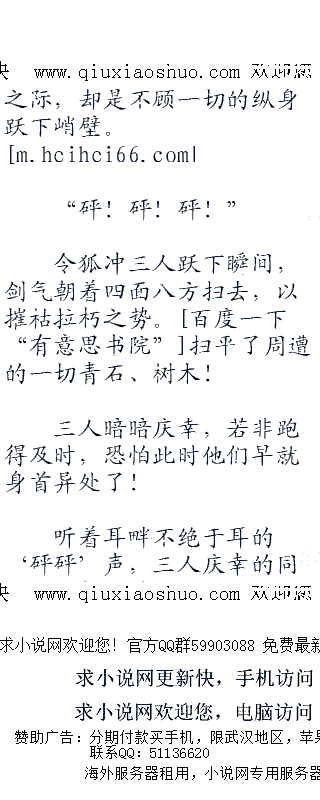 快 www.qiuxiaoshuo.com 欢迎您
之际，却是不顾一切的纵身
跃下峭壁。
[m.hcihci66.com|
“砰！砰！砰！”
令狐冲三人跃下瞬间，
剑气朝着四面八方扫去，以
摧枯拉朽之势。[百度一下
“有意思书院”]扫平了周遭
的一切青石、树木！
三人暗暗庆幸，若非跑
得及时，恐怕此时他们早就
身首异处了！
听着耳畔不绝于耳的
‘砰砰’声，三人庆幸的同
快 www.qiuxiaoshuo.com 欢迎您
求小说网欢迎您！官方QQ群59903088 免费最新
求小说网更新快，手机访问
求小说网欢迎您，电脑访问
赞助广告：分期付款买手机，限武汉地区，苹果
联系QQ：51136620
海外服务器租用，小说网专用服务器